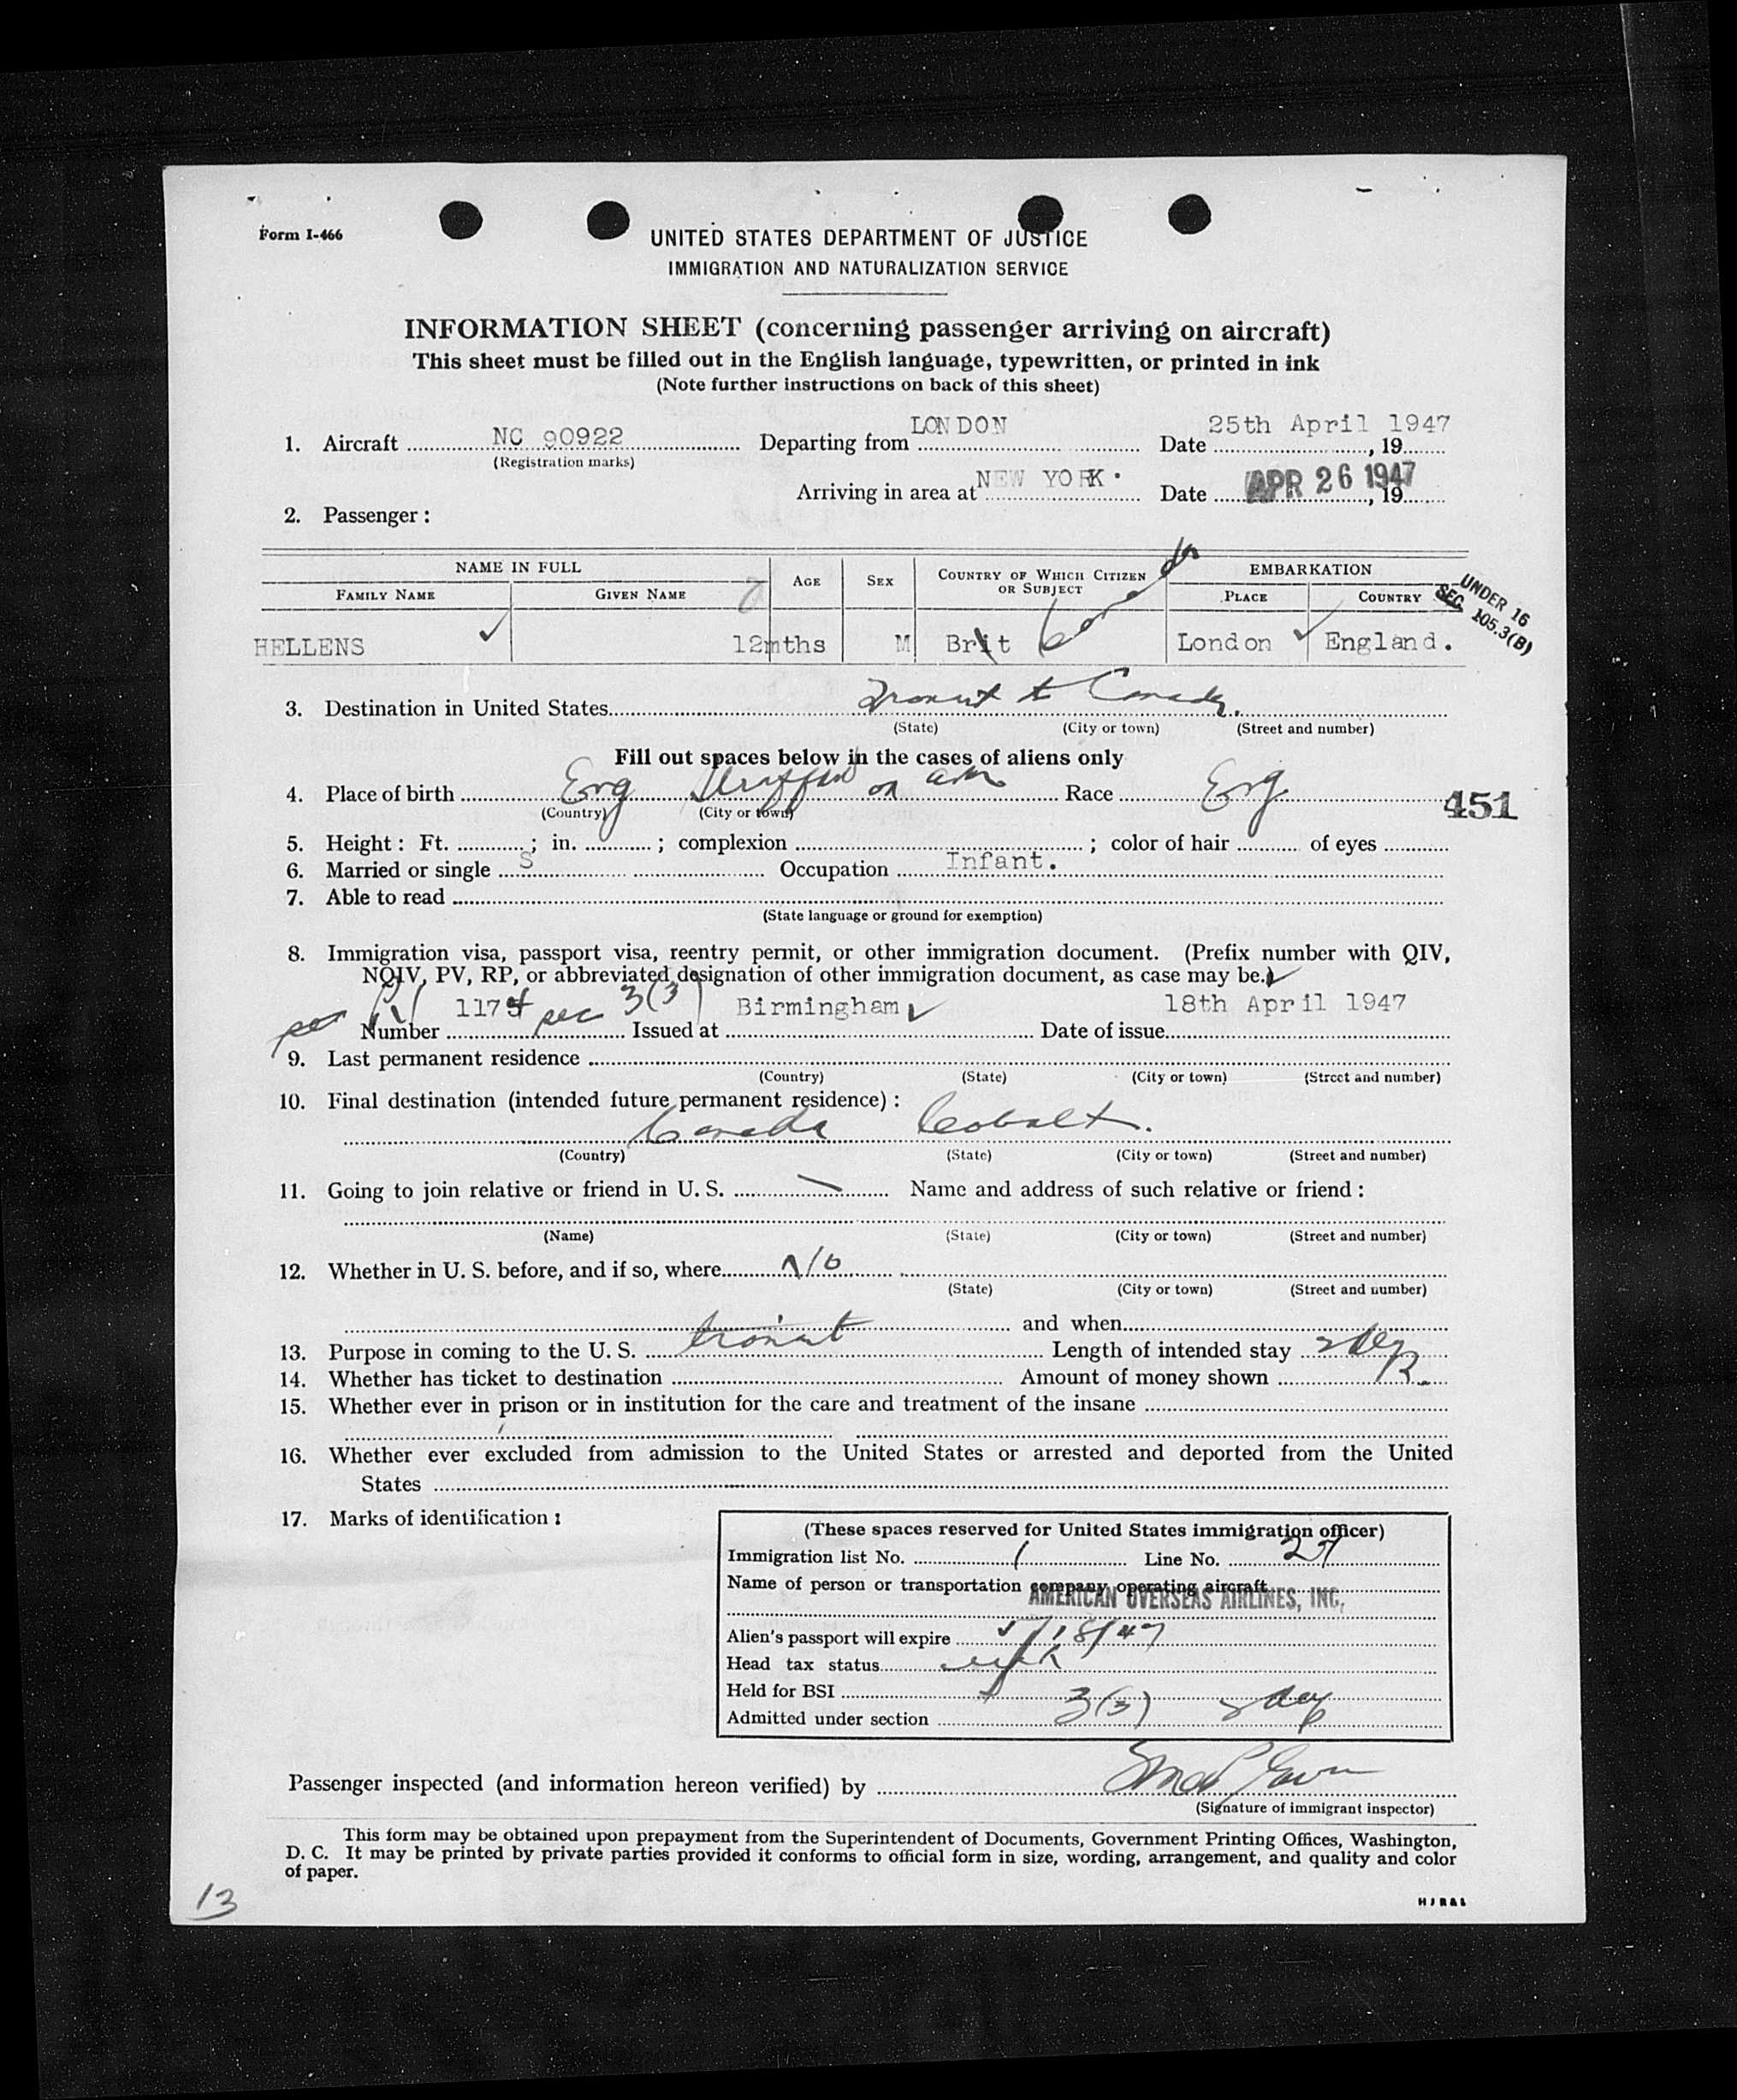 Form I-466
UNITED STATES DEPARTMENT OF JUSTICE
IMMIGRATION AND NATURALIZATION SERVICE
INFORMATION SHEET (concerning passenger arriving on aircraft)
This sheet must be filled out in the English language, typewritten, or printed in ink
(Note further instructions on back of this sheet)
1. Aircraft NC 90922 Departing from LONDON Date 25th April 1947, 19
(Registration marks)
Arriving in area at NEW YORK. Date APR 26 1947, 19
2. Passenger:
NAME IN FULL AGE SEX COUNTRY OF WHICH CITIZEN OR SUBJECT EMBARKATION
FAMILY NAME GIVEN NAME PLACE COUNTRY
UNDER 16
SEC. 105.3(B)
HELLENS 12mths M Brit Canada London England.
3. Destination in United States Transit to Canada.
(State) (City or town) (Street and number)
Fill out spaces below in the cases of aliens only
4. Place of birth Eng on Race Eng
(Country) (City or town)
451
5. Height: Ft. ; in. ; complexion ; color of hair of eyes
6. Married or single S Occupation Infant.
7. Able to read
(State language or ground for exemption)
8. Immigration visa, passport visa, reentry permit, or other immigration document. (Prefix number with QIV,
NQIV, PV, RP, or abbreviated designation of other immigration document, as case may be.)
Number 1174 sec 3(3) Issued at Birmingham Date of issue 18th April 1947
9. Last permanent residence
(Country) (State) (City or town) (Street and number)
10. Final destination (intended future permanent residence):
Canada Cobalt.
(Country) (State) (City or town) (Street and number)
11. Going to join relative or friend in U. S. Name and address of such relative or friend:
(Name) (State) (City or town) (Street and number)
12. Whether in U. S. before, and if so, where No
(State) (City or town) (Street and number)
and when
13. Purpose in coming to the U. S. transit Length of intended stay 2 days
14. Whether has ticket to destination Amount of money shown
15. Whether ever in prison or in institution for the care and treatment of the insane
16. Whether ever excluded from admission to the United States or arrested and deported from the United
States
17. Marks of identification:
(These spaces reserved for United States immigration officer)
Immigration list No. 1 Line No. 27
Name of person or transportation company operating aircraft
AMERICAN OVERSEAS AIRLINES, INC.
Alien's passport will expire
Head tax status
Held for BSI
Admitted under section 3(3) 2 day
Passenger inspected (and information hereon verified) by
(Signature of immigrant inspector)
This form may be obtained upon prepayment from the Superintendent of Documents, Government Printing Offices, Washington,
D. C. It may be printed by private parties provided it conforms to official form in size, wording, arrangement, and quality and color
of paper.
13
H J R & L